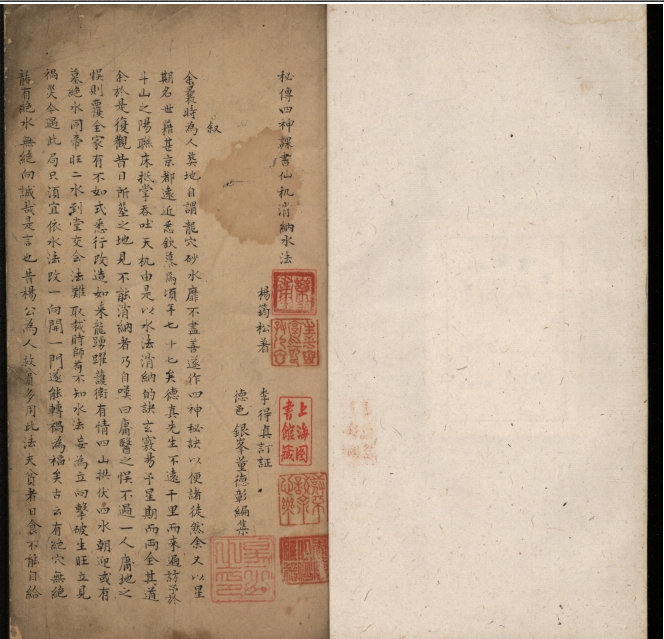 秘傳四神課書仙机消納水法
楊筠松著
李得真訂証
德邑銀峯董德彰編集
叙
余曩時為人葬地自謂龍穴砂水靡不盡善遂作四神秘訣以便諸徒然余又以星
期名世籍甚京都遠近悉欽慕焉頃年七十七矣德真先生不遠千里而來過訪余於
斗山之陽聯床抵掌吞吐天机由是以水法消納的訣玄竅易予星期而兩全其道
余於是復觀昔日所塟之地見不能消納者乃自嘆曰庸醫之悞不過一人庸地之
悞則覆全家有不如式悉行改造如來龍踴躍護衛有情四山拱伏品水朝迎或有
墓絕水同帝旺二水到堂交会法難取裁時師苟不知水法妄為立向擊破生旺立見
禍災今遇此局只須宜依水法改一向開一門遂能轉禍為福矣古云有絕穴無絕
龍有絕水無絕向誠哉是言也昔楊公為人救貧多用此法夫貧者日食不能自給
上海圖
書館藏